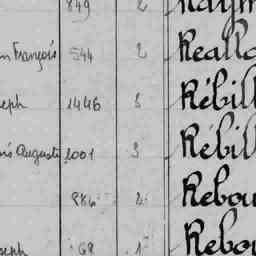 849 2 Raym
n François 544 2 Reallo
seph 1446 5 Rébill
Auguste 1001 3 Rébill
2 Rebou
seph 68 1 Rebou